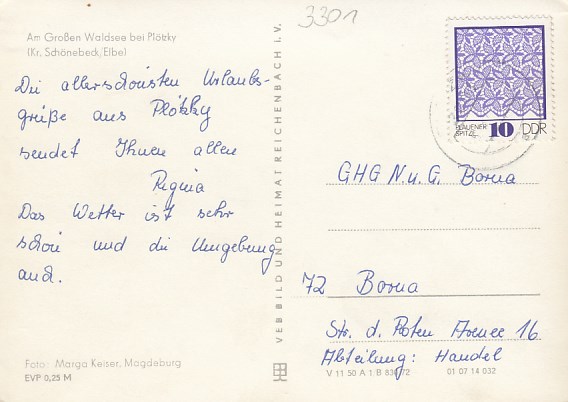 3301
Am Großen Waldsee bei Plötzky
(Kr. Schönebeck/Elbe)
Die allerschönsten Urlaubs-
grüße aus Plötzky
sendet Ihnen allen
Regina
Das Wetter ist sehr
schön und die Umgebung
auch.
Foto: Marga Keiser, Magdeburg
EVP 0,25 M
VEB BILD UND HEIMAT REICHENBACH i. V.
PLAUENER
SPITZE 10 DDR
GHG N.u.G. Borna
72 Borna
Str. d. Roten Armee 16
Abteilung: Handel
V 11 50 A 1 B 72
01 07 14 032